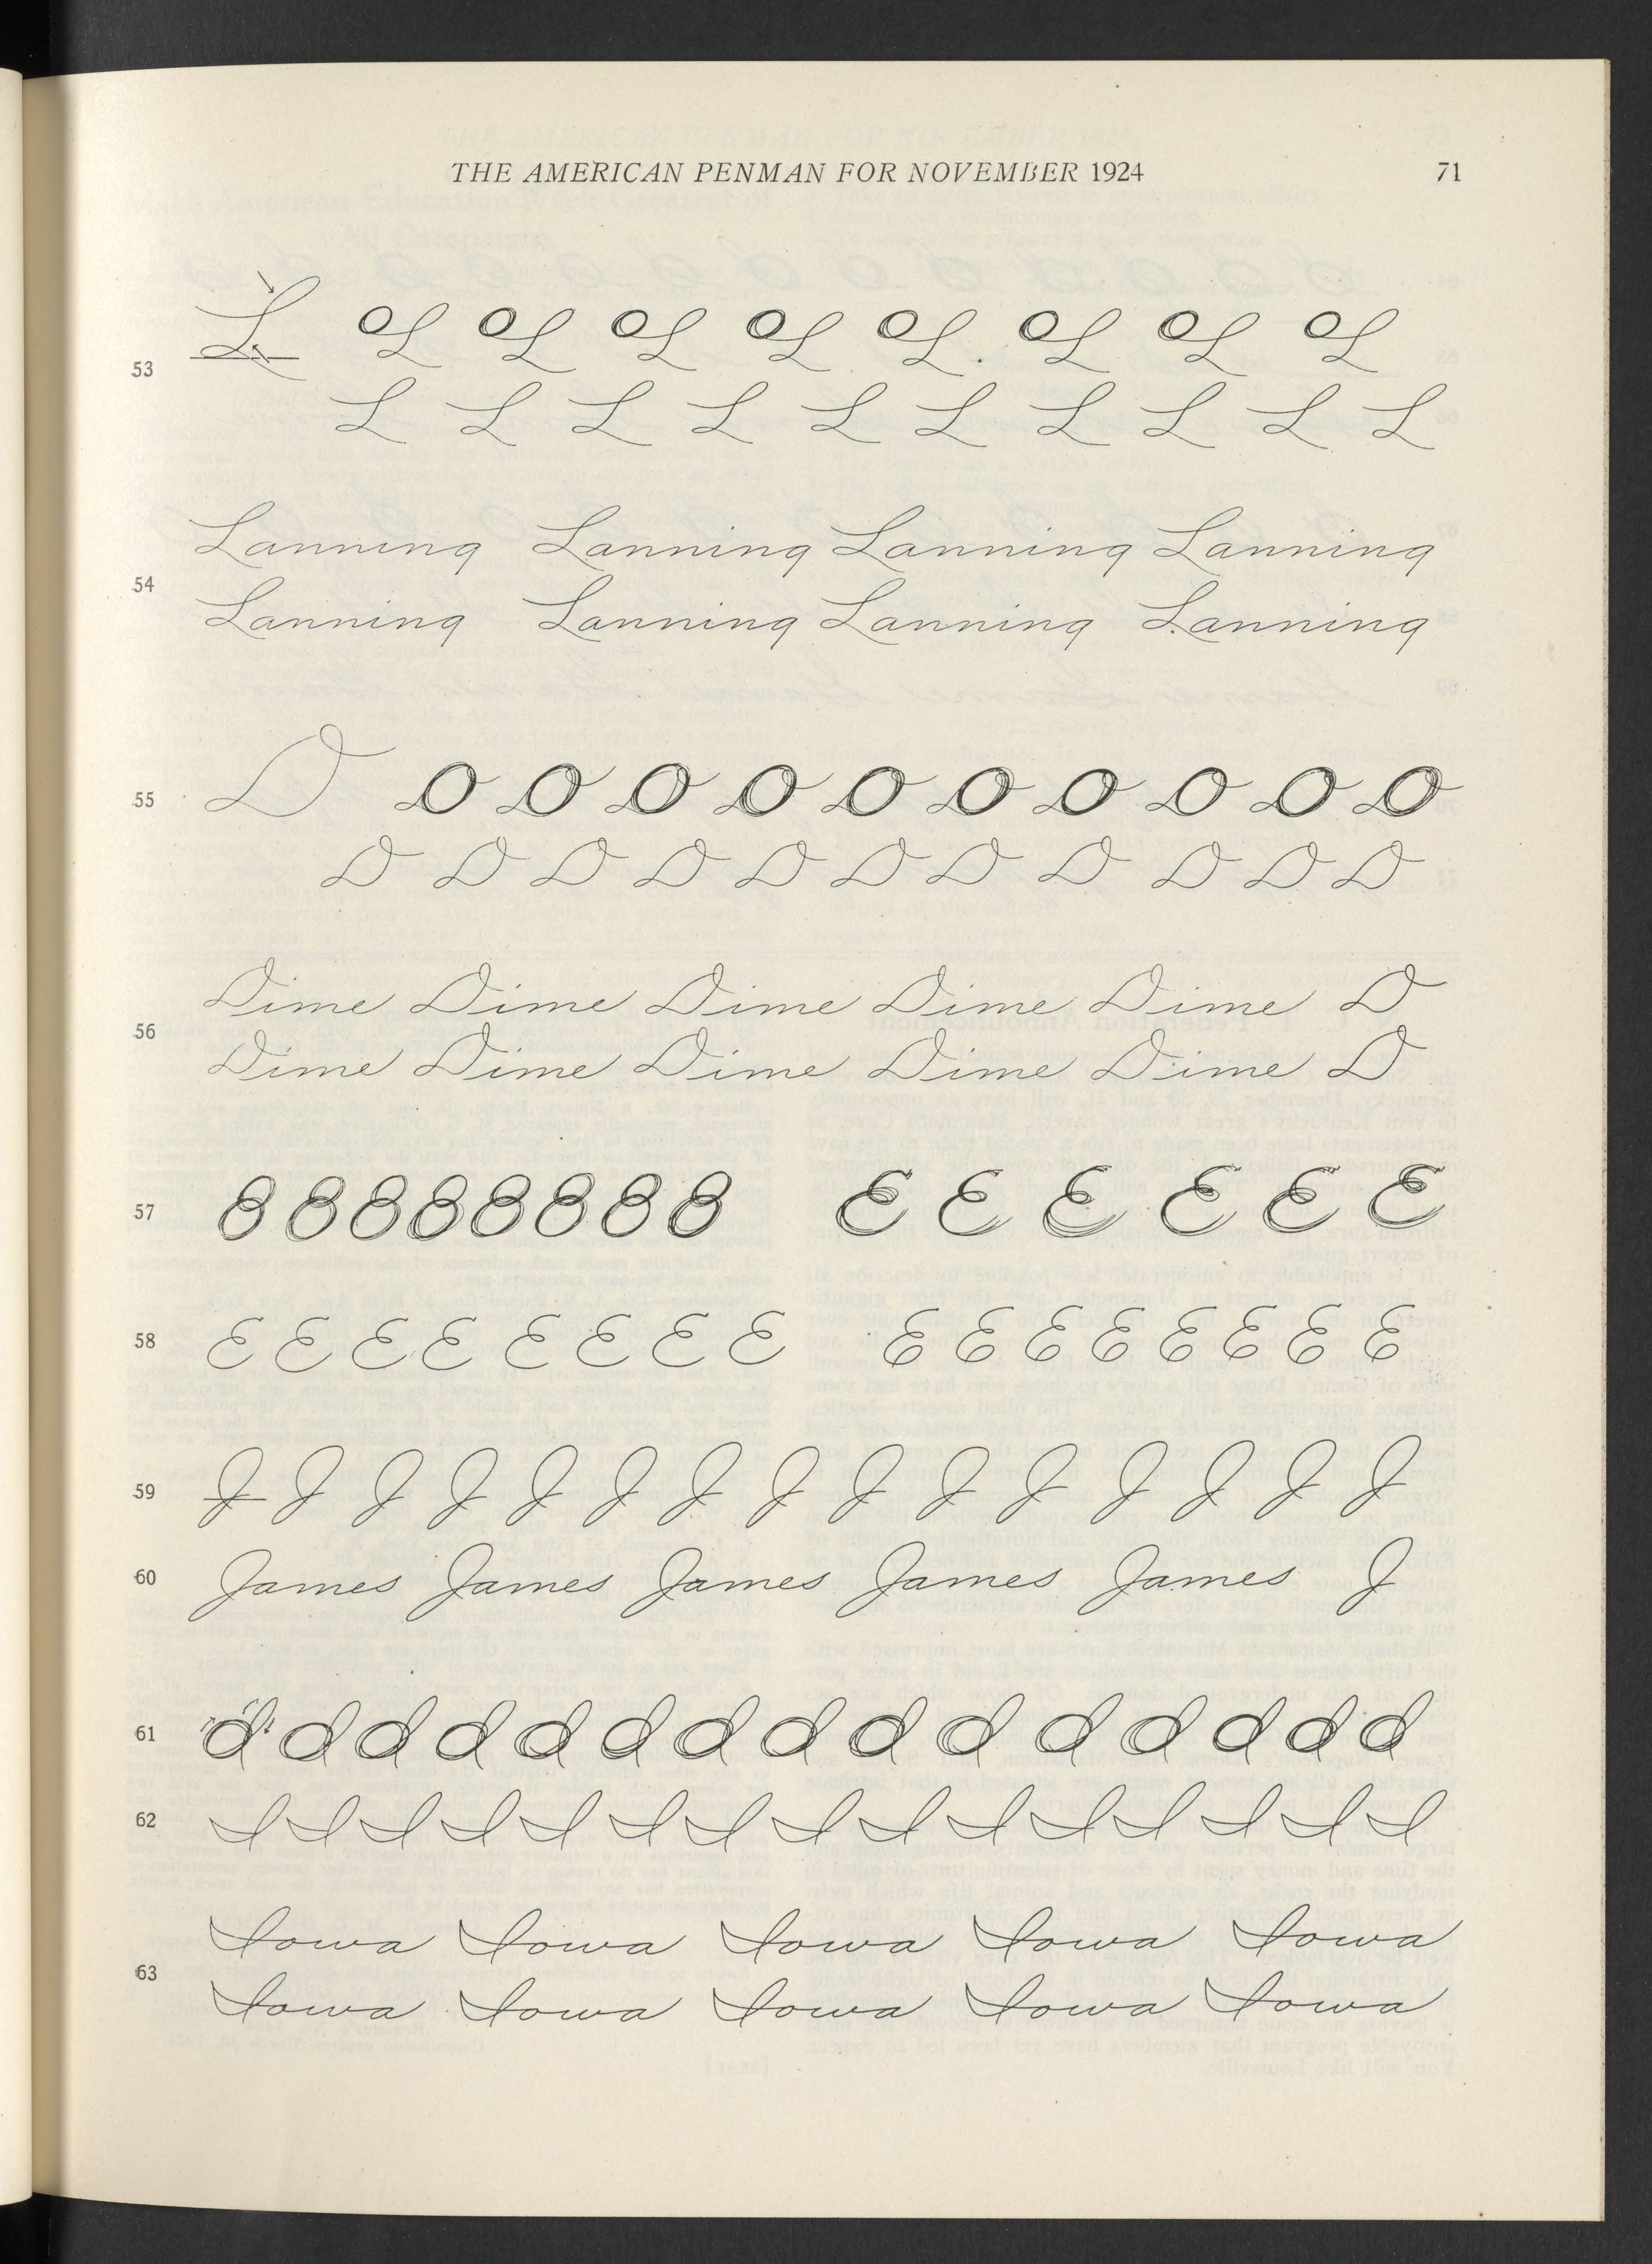 THE AMERICAN PENMAN FOR NOVEMBER 1924 71
53 L O L O L O L O L O L O L O L O L
L L L L L L L L L L
54 Lanning Lanning Lanning Lanning
Lanning Lanning Lanning Lanning
55 D O O O O O O O O O O
D D D D D D D D D D D
56 Dime Dime Dime Dime Dime D
Dime Dime Dime Dime Dime D
57 8 8 8 8 8 8 8 8 E E E E E E
58 E E E E E E E E E E E E E E E E
59 J J J J J J J J J J J J J J J
60 James James James James James J
61 d d d d d d d d d d d d d d d
62 I I I I I I I I I I I I I I I
63 Iowa Iowa Iowa Iowa Iowa
Iowa Iowa Iowa Iowa Iowa